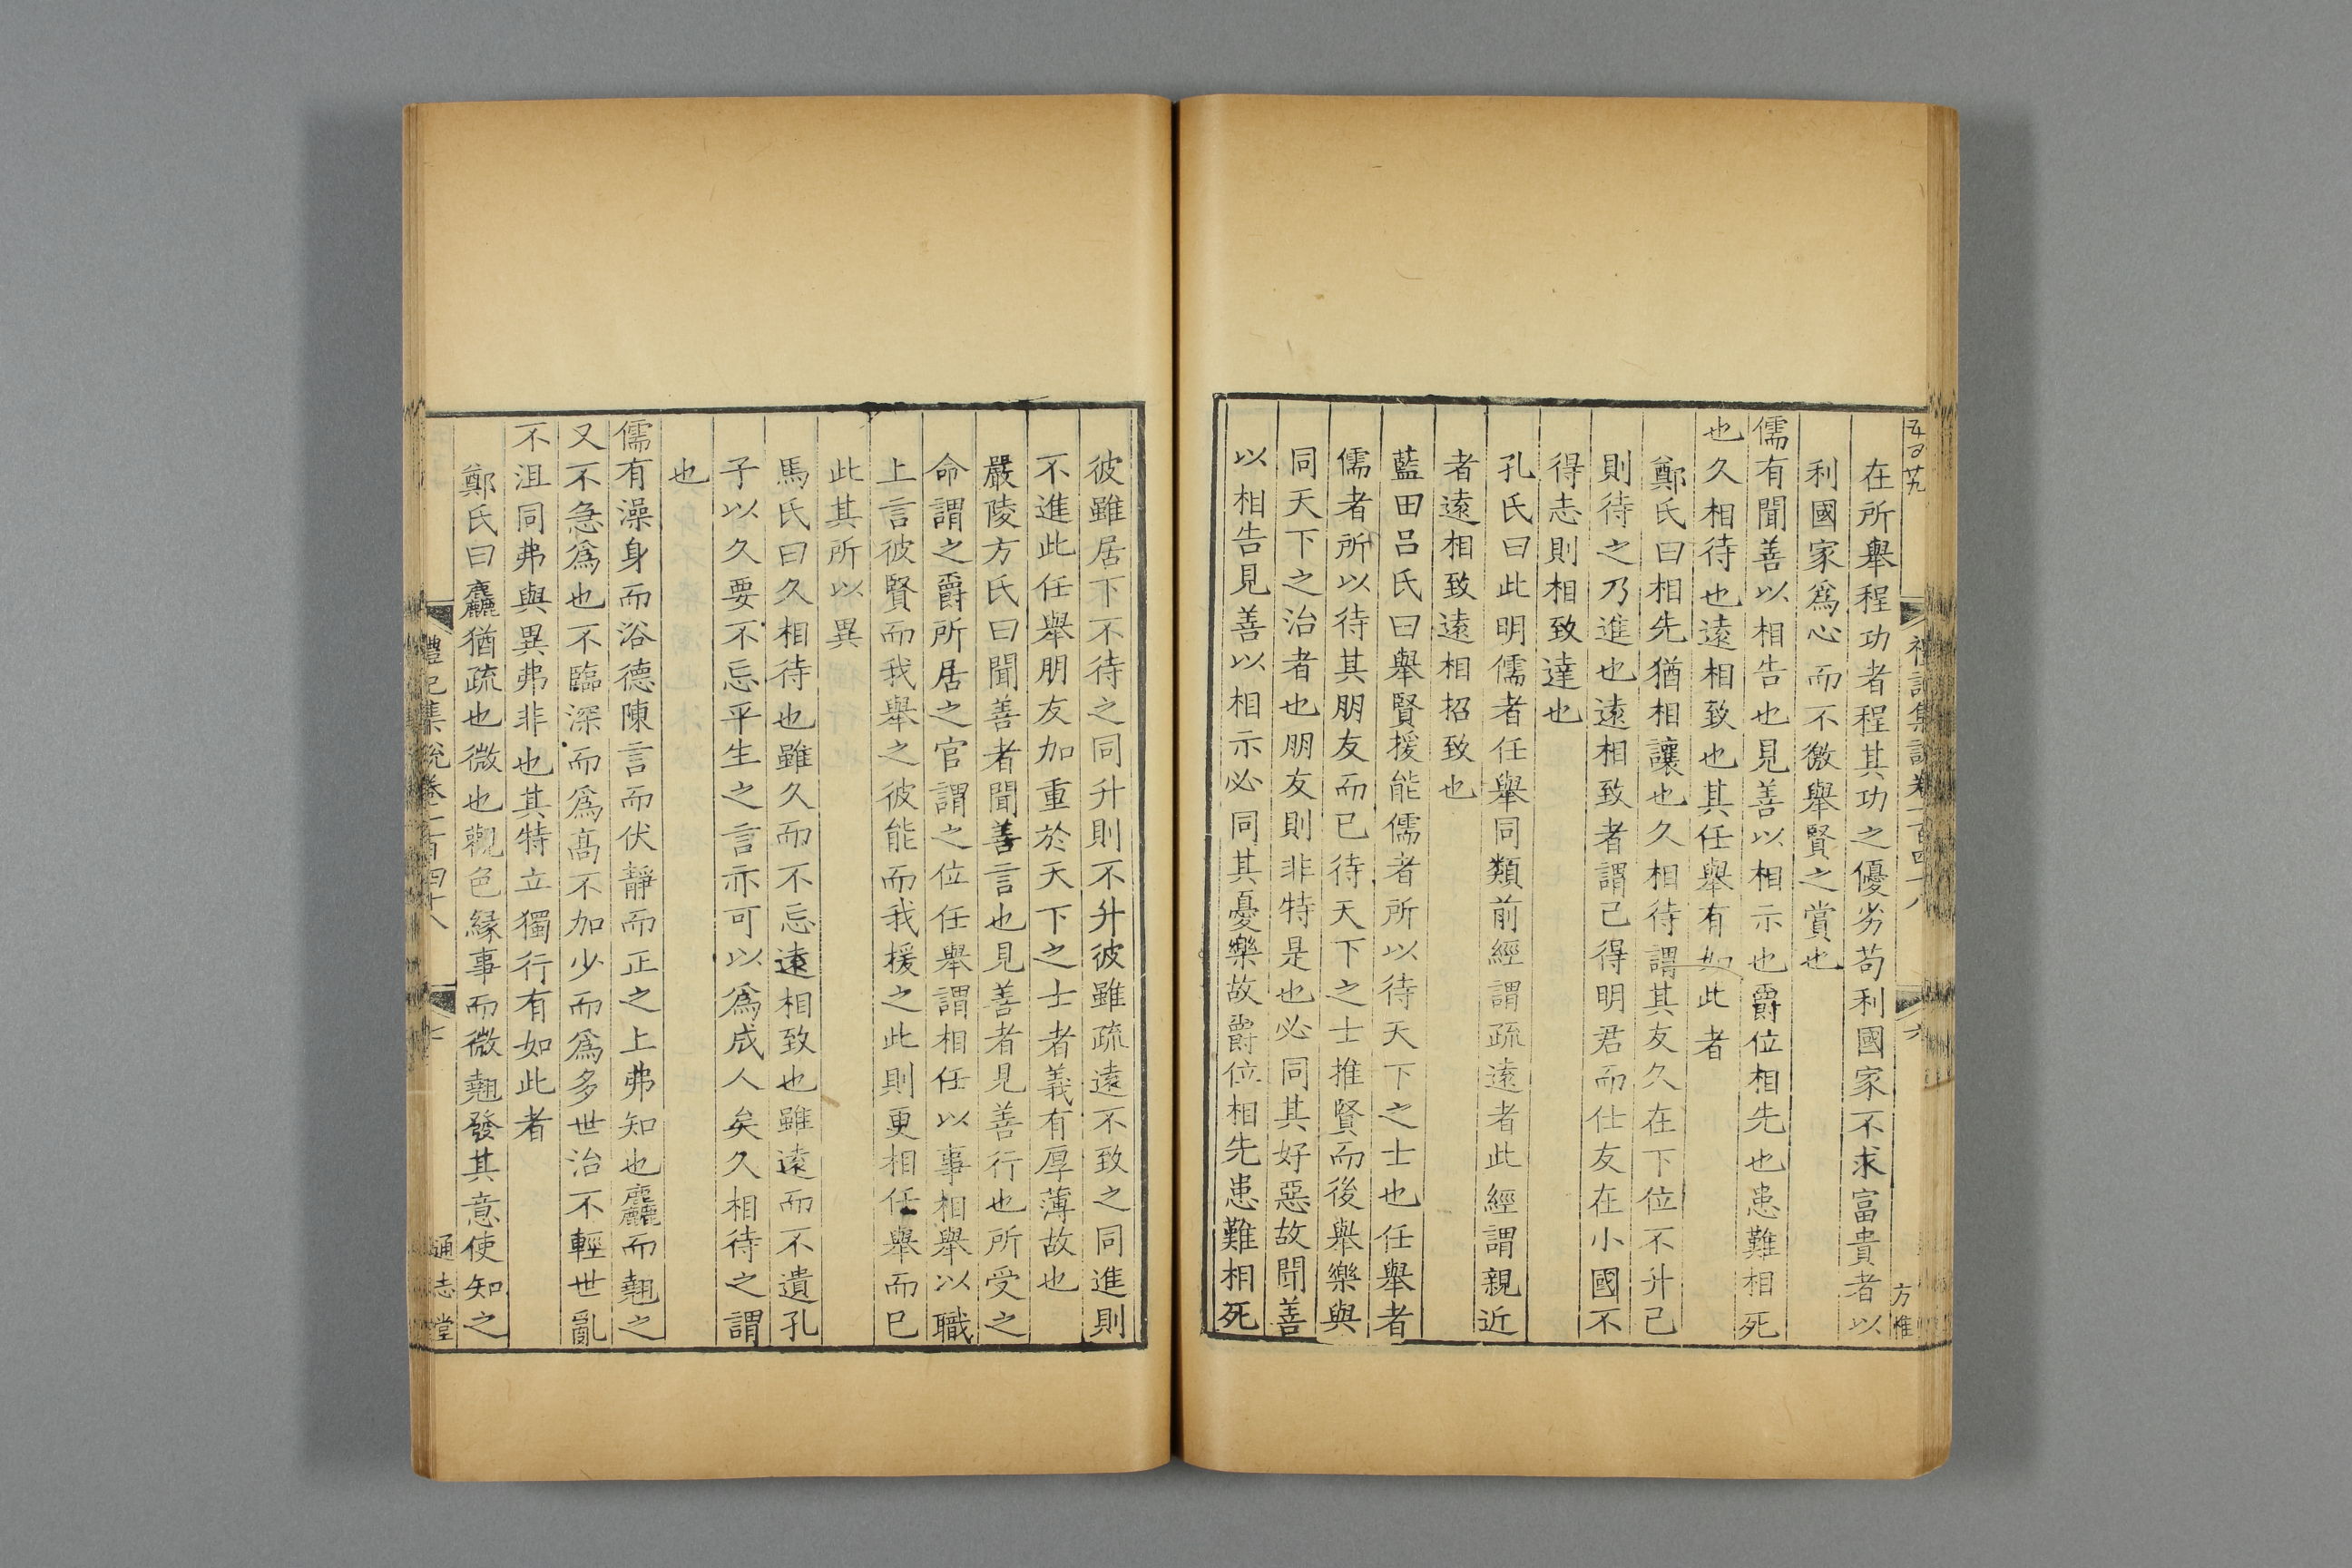 在所舉程功者程其功之優劣苟利國家不求富貴者以
利國家爲心而不徼舉賢之賞也
儒有聞善以相告也見善以相示也爵位相先也患難相死
也久相待也遠相致也其任舉有如此者
鄭氏曰相先猶相讓也久相待謂其友久在下位不升己
則待之乃進也遠相致者謂己得明君而仕友在小國不
得志則相致達也
孔氏曰此明儒者任舉同類前經謂疏遠者此經謂親近
者遠相致遠相招致也
藍田呂氏曰舉賢援能儒者所以待天下之士也任舉者
儒者所以待其朋友而已待天下之士推賢而後舉樂與
同天下之治者也朋友則非特是也必同其好惡故聞善
以相告見善以相示必同其憂樂故爵位相先患難相死
彼雖居下不待之同升則不升彼雖疏遠不致之同進則
不進此任舉朋友加重於天下之士者義有厚薄故也
嚴陵方氏曰聞善者聞善言也見善者見善行也所受之
命謂之爵所居之官謂之位任舉謂相任以事相舉以職
上言彼賢而我舉之彼能而我援之此則更相任舉而已
此其所以異
馬氏曰久相待也雖久而不忘遠相致也雖遠而不遺孔
子以久要不忘平生之言亦可以爲成人矣久相待之謂
也
儒有澡身而浴德陳言而伏靜而正之上弗知也麤而翹之
又不急爲也不臨深而爲高不加少而爲多世治不輕世亂
不沮同弗與異弗非也其特立獨行有如此者
鄭氏曰麤猶疏也微也觀色緣事而微翹發其意使知之
禮記集說卷一百四十八
通志堂